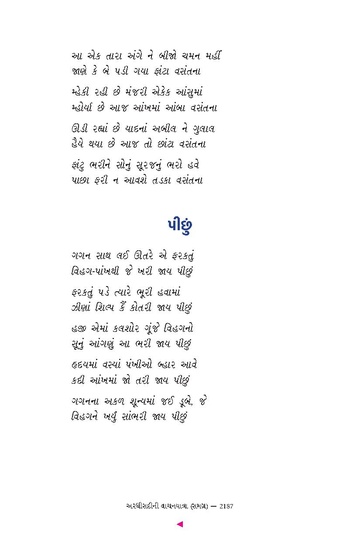 આ એક તારા અંગે ને બીજો ચમન મહીં
જાણે કે બે પડી ગયા ફાંટા વસંતના
મ્હેકી રહી છે મંજરી એકેક આંસુમાં
મ્હોર્યા છે આજ આંખમાં આંબા વસંતના
ઊડી રહ્યાં છે યાદનાં અબીલ ને ગુલાલ
હૈયે થયા છે આજ તો છાંટા વસંતના
ફાંટુ ભરીને સોનું સૂરજનું ભરો હવે
પાછા ફરી ન આવશે તડકા વસંતના
પીછું
ગગન સાથ લઈ ઊતરે એ ફરકતું
વિહગ-પાંખથી જે ખરી જાય પીછું
ફરકતું પડે ત્યારે ભૂરી હવામાં
ઝીણાં શિલ્પ કૈં કોતરી જાય પીછું
હજી એમાં કલશોર ગૂંજે વિહગનો
સૂનું આંગણું આ ભરી જાય પીછું
હૃદયમાં વસ્યાં પંખીઓ બ્હાર આવે
કદી આંખમાં જો તરી જાય પીછું
ગગનના અકળ શૂન્યમાં જઈ ડૂબે, જે
વિહગને ખર્યું સાંભરી જાય પીછું
અરધીસદીની વાચનયાત્રા (સમગ્ર) — 2187